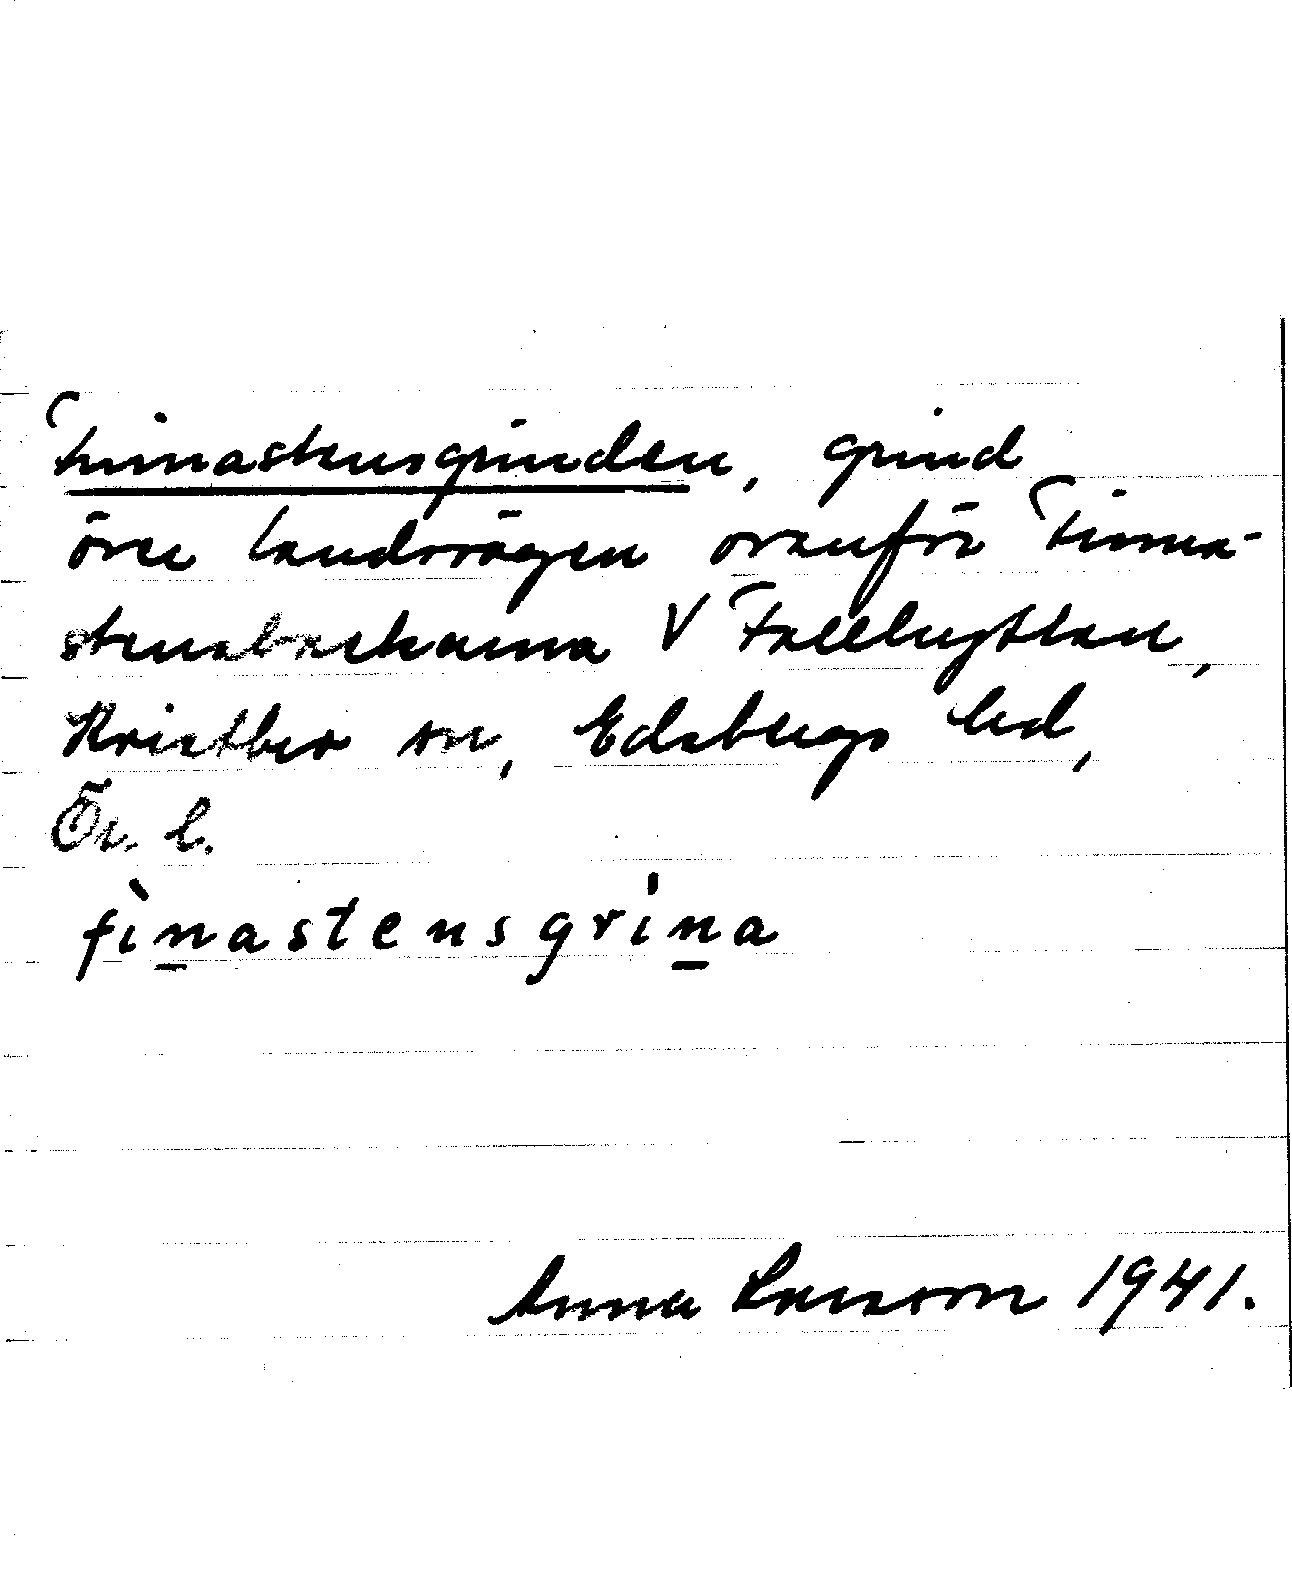 Finnastensgrinden, grind
över landsvägen ovanför Finna-
stensbackarna V Fallhyttan,
Kvistbro sn, Edsbergs hd,
Ör. l.
fìnastensgrína
Anna Larsson 1941.